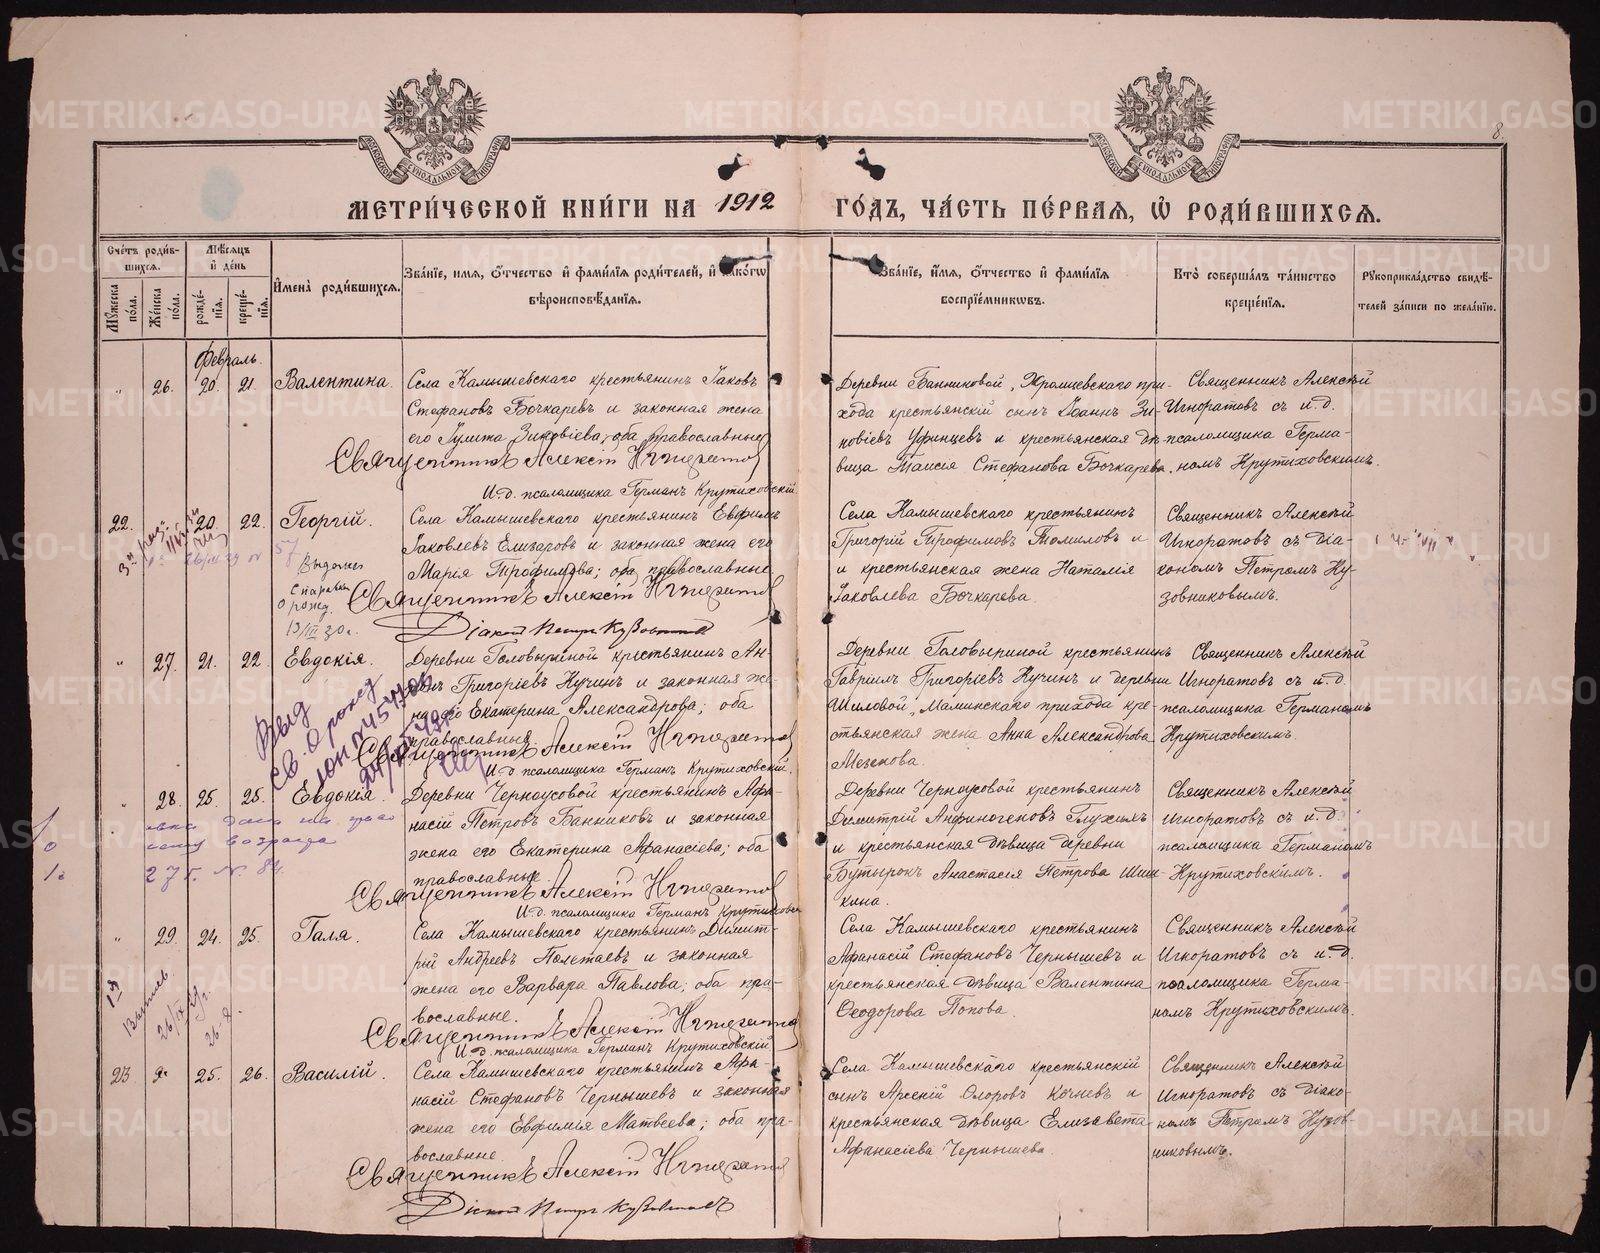 8.
МЕТРИЧЕСКОЙ КНИГИ НА 1912 ГОДЪ, ЧАСТЬ ПЕРВАЯ, Ѡ РОДИВШИХСЯ.
Счетъ родившихся.
Мужеска пола.
Женска пола.
Мѣсяцъ и день
рожденія.
крещенія.
Имена родившихся.
Званіе, имя, отчество и фамилія родителей, и какого
вѣроисповѣданія.
Званіе, имя, отчество и фамилія
воспріемниковъ.
Кто совершалъ таинство
крещенія.
Рукоприкладство свидѣ-
телей записи по желанію.
Февраль.
" 26. 20. 21. Валентина.
Села Камышевскаго крестьянинъ Іаковъ
Стефановъ Бочкаревъ и законная жена
его Іулита Зиновіева; оба православные
Священникъ Алексій Игноратов
И.д. псаломщика Германъ Крутиховскій
Деревни Банниковой, Хромцевскаго при-
хода крестьянскій сынъ Іоаннъ Зи-
новіевъ Уфинцевъ и крестьянская дѣ-
вица Таисія Стефанова Бочкарева.
Священникъ Алексѣй
Игноратовъ съ и.д.
псаломщика Герма-
номъ Крутиховскимъ.
22. 20. 22. Георгій.
Села Камышевскаго крестьянинъ Евфимъ
Іаковлевъ Елизаровъ и законная жена его
Марія Трофимова; оба православные
Священникъ Алексій Игноратов
Діаконъ Петръ Кузовников
Выдана
справка
о рожд.
13/III 30 г.
57
Села Камышевскаго крестьянинъ
Григорій Трофимовъ Томиловъ и
и крестьянская жена Наталія
Іаковлева Бочкарева
Священникъ Алексѣй
Игноратовъ съ діа-
кономъ Петромъ Ку-
зовниковымъ.
" 27. 21. 22 Евдокія.
Деревни Головыриной крестьянинъ Ан-
Григоріевъ Кучинъ и законная же-
на его Екатерина Александрова; оба
православные.
Священникъ Алексій Игноратов
И.д. псаломщика Германъ Крутиховскій.
Выд
св. о рожд
Деревни Головыриной крестьянинъ
Гавріилъ Григоріевъ Кучинъ и деревни
Шиловой, Маминскаго прихода кре-
стьянская жена Анна Александрова
Мезенова.
Священникъ Алексѣй
Игноратовъ съ и.д.
псаломщика Германомъ
Крутиховскимъ.
" 28. 25. 25. Евдокія.
Деревни Черноусовой крестьянинъ Афа-
насій Петровъ Банниковъ и законная
жена его Екатерина Афанасіева; оба
православные.
Священникъ Алексій Игноратов
И.д. псаломщика Германъ Крутиховск
возраста
27 г. N. 84.
Деревни Черноусовой крестьянинъ
Димитрій Анфиногеновъ Глухихъ
и крестьянская дѣвица деревни
Бутырокъ Анастасія Петрова Шиш-
кина.
Священникъ Алексѣй
Игноратовъ съ и.д.
псаломщика Германомъ
Крутиховскимъ.
" 29. 24. 25. Галя.
Села Камышевскаго крестьянинъ Димит-
рій Андреевъ Полетаевъ и законная
жена его Варвара Павлова; оба пра-
вославные.
Священникъ Алексій Игноратов
И.д. псаломщика Германъ Крутиховскій
Села Камышевскаго крестьянинъ
Афанасій Стефановъ Чернышевъ и
крестьянская дѣвица Валентина
Ѳеодорова Попова.
Священникъ Алексѣй
Игноратовъ съ и.д.
псаломщика Герма-
номъ Крутиховскимъ.
23 25. 26. Василій.
Села Камышевскаго крестьянинъ Афа-
насій Стефановъ Чернышевъ и законная
жена его Евфимія Матвеева; оба пра-
вославные.
Священникъ Алексій Игноратов
Діаконъ Петръ Кузовников
Села Камышевскаго крестьянскій
сынъ Арсеній Флоровъ Кочневъ и
крестьянская дѣвица Елизавета
Афанасіева Чернышева.
Священникъ Алексѣй
Игноратовъ съ діако-
номъ Петромъ Кузов-
никовымъ.
METRIKI.GASO-URAL.RU